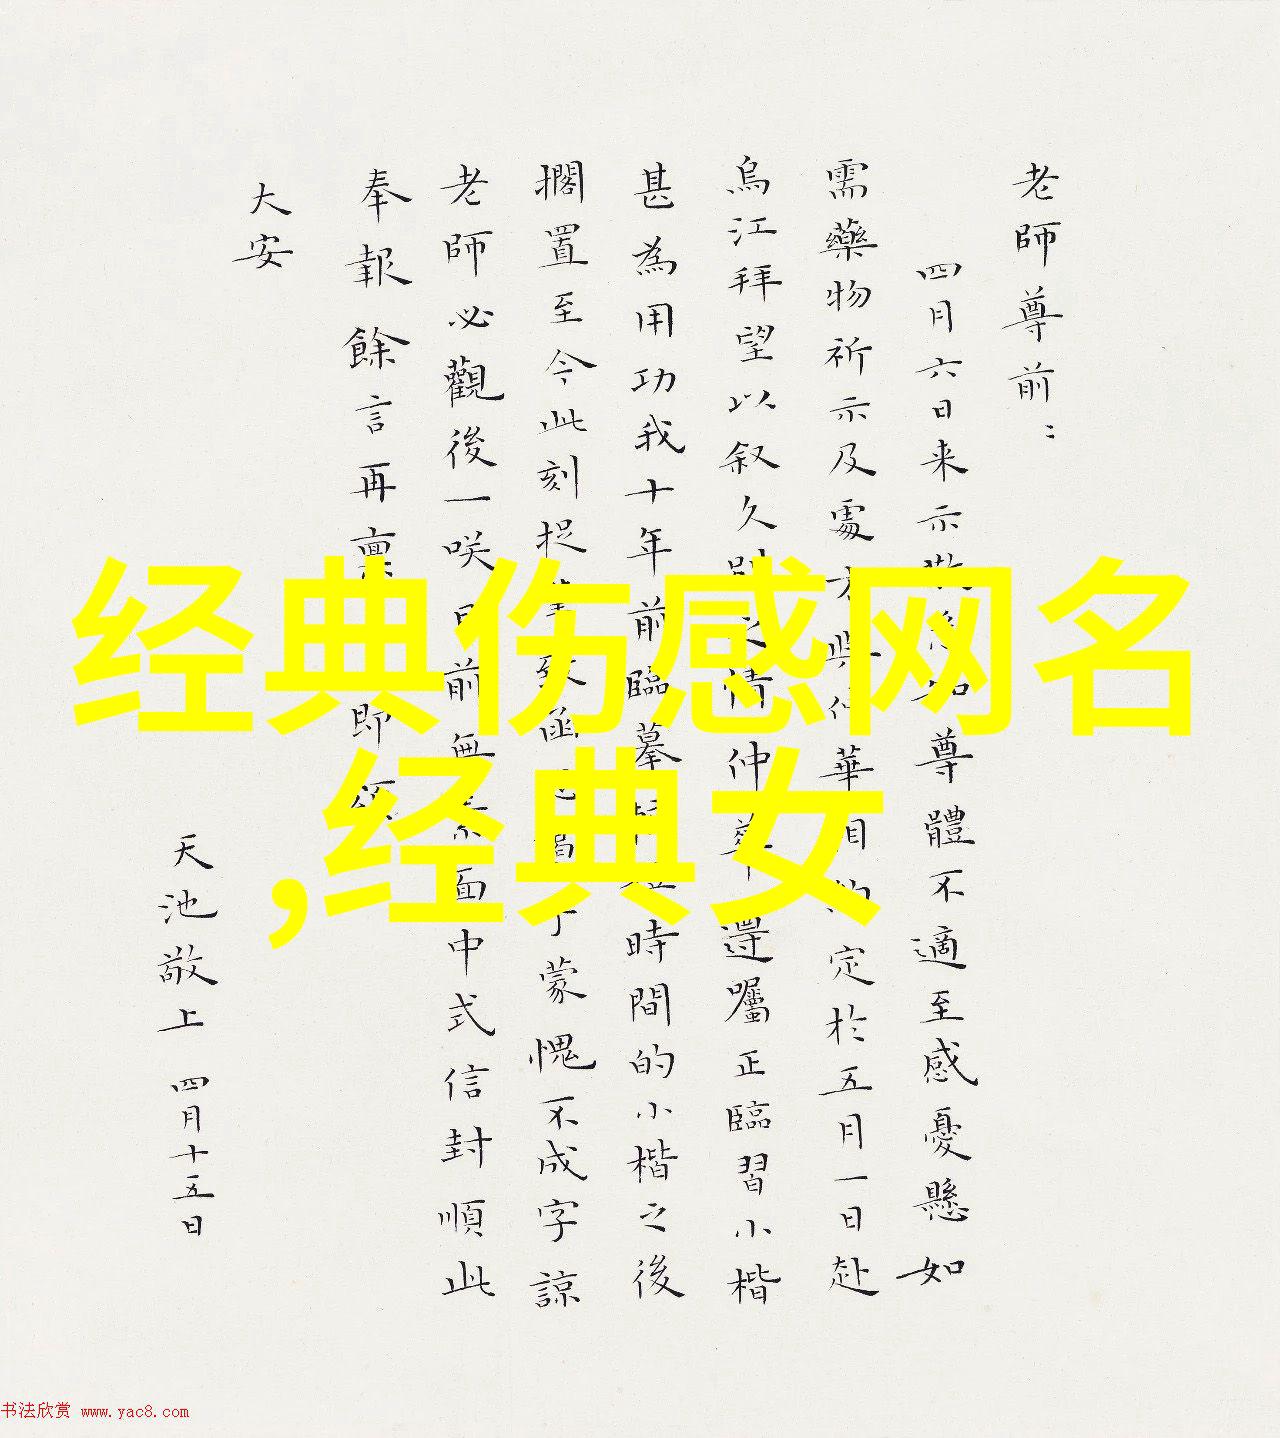 老師尊前：
四月六日来示敬悉知尊體不適至感憂懸如
需藥物祈示及處方與仲華相約定於五月一日赴
烏江拜望以叙久別之情仲華還囑正臨習小楷
甚為用功我十年前臨摹時間的小楷之後
擱置至今此刻捉筆致函蒙愧不成字諒
老師必觀後一咲目前無素面中式信封順此
奉報餘言再稟即頌
大安
天池敬上 四月十五日
经典伤感网名
,经典女
书法欣赏 www.yac8.com